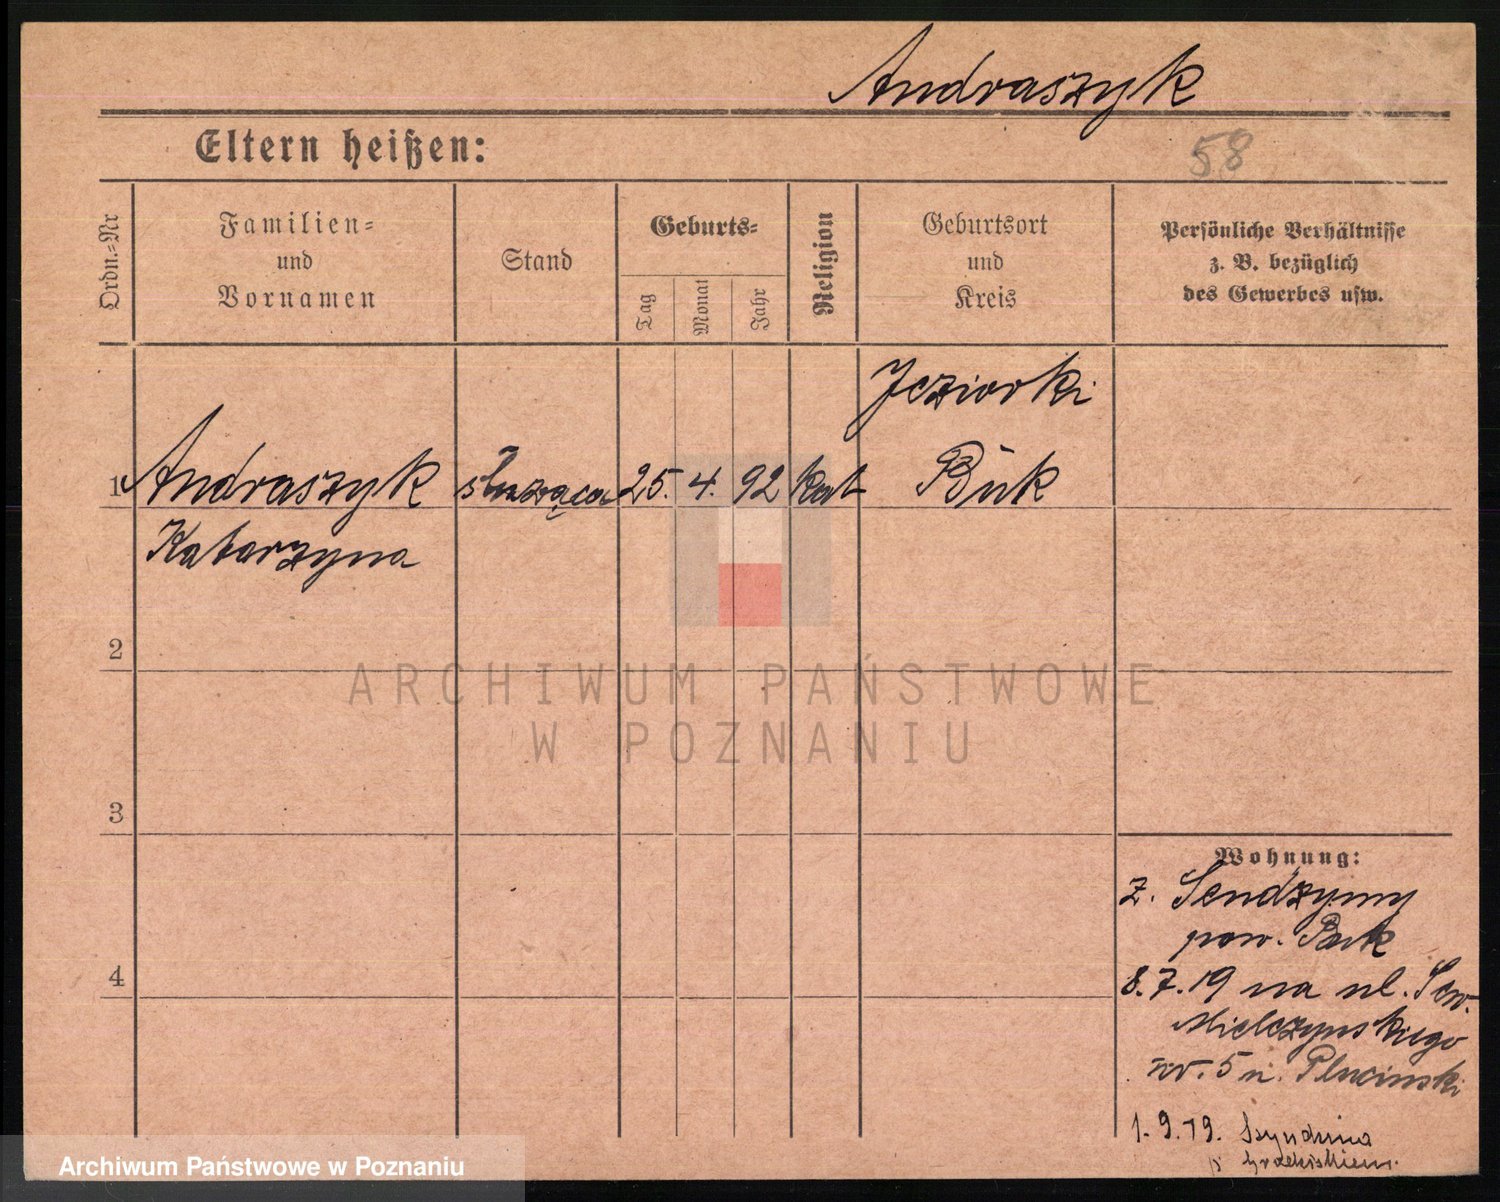 Andraszyk
Eltern heißen:
58
Ordn.=Nr
Familien=
und
Vornamen
Stand
Geburts=
Tag
Monat
Jahr
Religion
Geburtsort
und
Kreis
Persönliche Verhältnisse
z. B. bezüglich
des Gewerbes usw.
Jeziorki
1 Andraszyk służąca 25. 4. 92 kat Buk
Katarzyna
2
3
4
ARCHIWUM PAŃSTWOWE
W POZNANIU
Wohnung:
z. Sendzyny
pow. Buk
8.7.19 na ul. Sew.
Mielczynskiego
nr. 5 u. Plucinski
1.9.19.
Archiwum Państwowe w Poznaniu